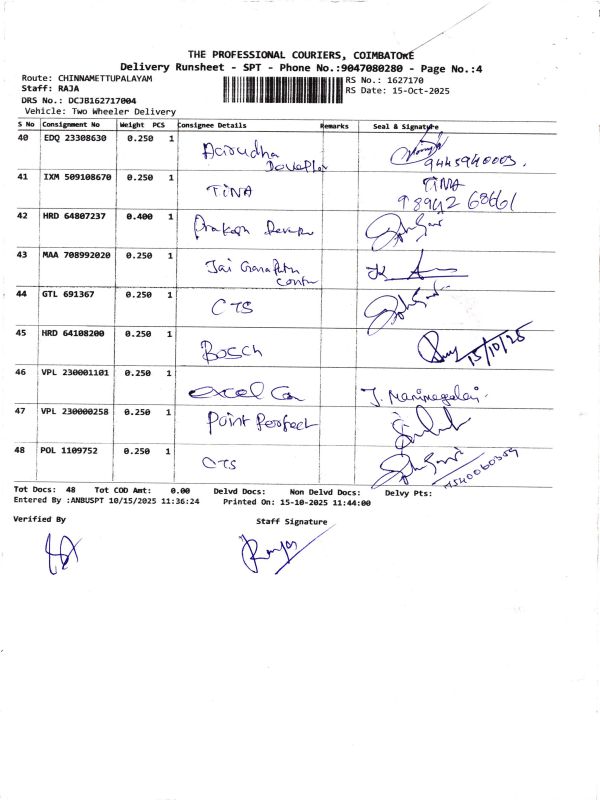 THE PROFESSIONAL COURIERS, COIMBATORE
Delivery Runsheet - SPT - Phone No.:9047080280 - Page No.:4
Route: CHINNAMETTUPALAYAM
RS No.: 1627170
Staff: RAJA
RS Date: 15-Oct-2025
DRS No.: DCJB162717004
Vehicle: Two Wheeler Delivery
S No Consignment No Weight PCS Consignee Details Remarks Seal & Signature
40 EDQ 23308630 0.250 1 Anirudha
9445940003.
41 IXM 509108670 0.250 1 TINA TINA
98942 68661
42 HRD 64807237 0.400 1 Prakash
43 MAA 708992020 0.250 1 Jai Ganapathy
44 GTL 691367 0.250 1 CTS
45 HRD 64108200 0.250 1 Bosch 15/10/25
46 VPL 230001101 0.250 1 excel Co J. Manimegalai.
47 VPL 230000258 0.250 1 Point Perfect
48 POL 1109752 0.250 1 CTS
Tot Docs: 48 Tot COD Amt: 0.00 Delvd Docs: Non Delvd Docs: Delvy Pts:
Entered By :ANBUSPT 10/15/2025 11:36:24 Printed On: 15-10-2025 11:44:00
Verified By Staff Signature